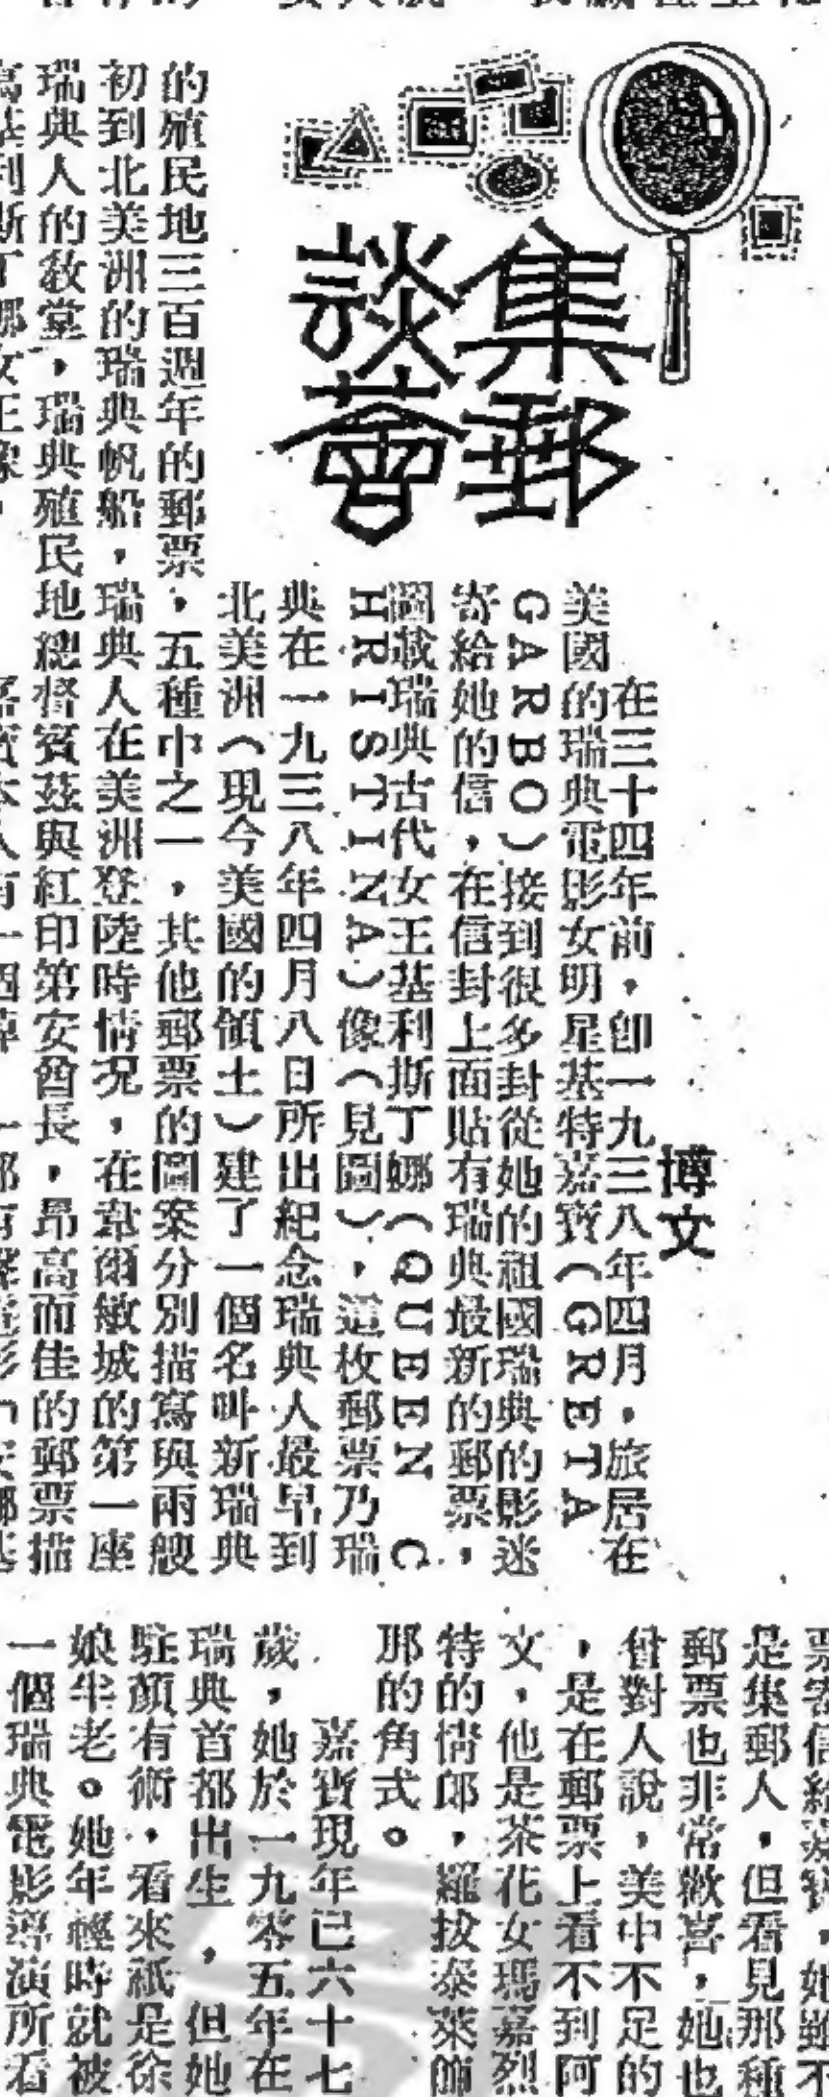 集郵
談薈
博文
在三十四年前，即一九三八年四月，旅居在
美國的瑞典電影女明星基特嘉寶（GRETA
GARBO）接到很多封從她的祖國瑞典的影迷
寄給她的信，在信封上面貼有瑞典最新的郵票，
圖載瑞典古代女王基利斯丁娜（QUEEN C
HRISTINA）像（見圖），這枚郵票乃瑞
典在一九三八年四月八日所出紀念瑞典人最早到
北美洲（現今美國的領土）建了一個名叫新瑞典
的殖民地三百週年的郵票，五種中之一，其他郵票的圖案分別描寫與兩艘
初到北美洲的瑞典帆船，瑞典人在美洲登陸時情况，在韋爾敏城的第一座
瑞典人的敎堂，瑞典殖民地總督賓茲與紅印第安酋長，昂高而佳的郵票描
是集郵人，但看見那種
郵票也非常歡喜，她也
對人說，美中不足的
，是在郵票上看不到阿
文，他是茶花女瑪嘉烈
特的情郎，羅拔泰萊飾
那的角式。
嘉寶現年已六十七
歲，她於一九零五年在
瑞典首都出生，但她
駐顏有術，看來祇是徐
娘半老。她年輕時就被
一個瑞典電影導演所看